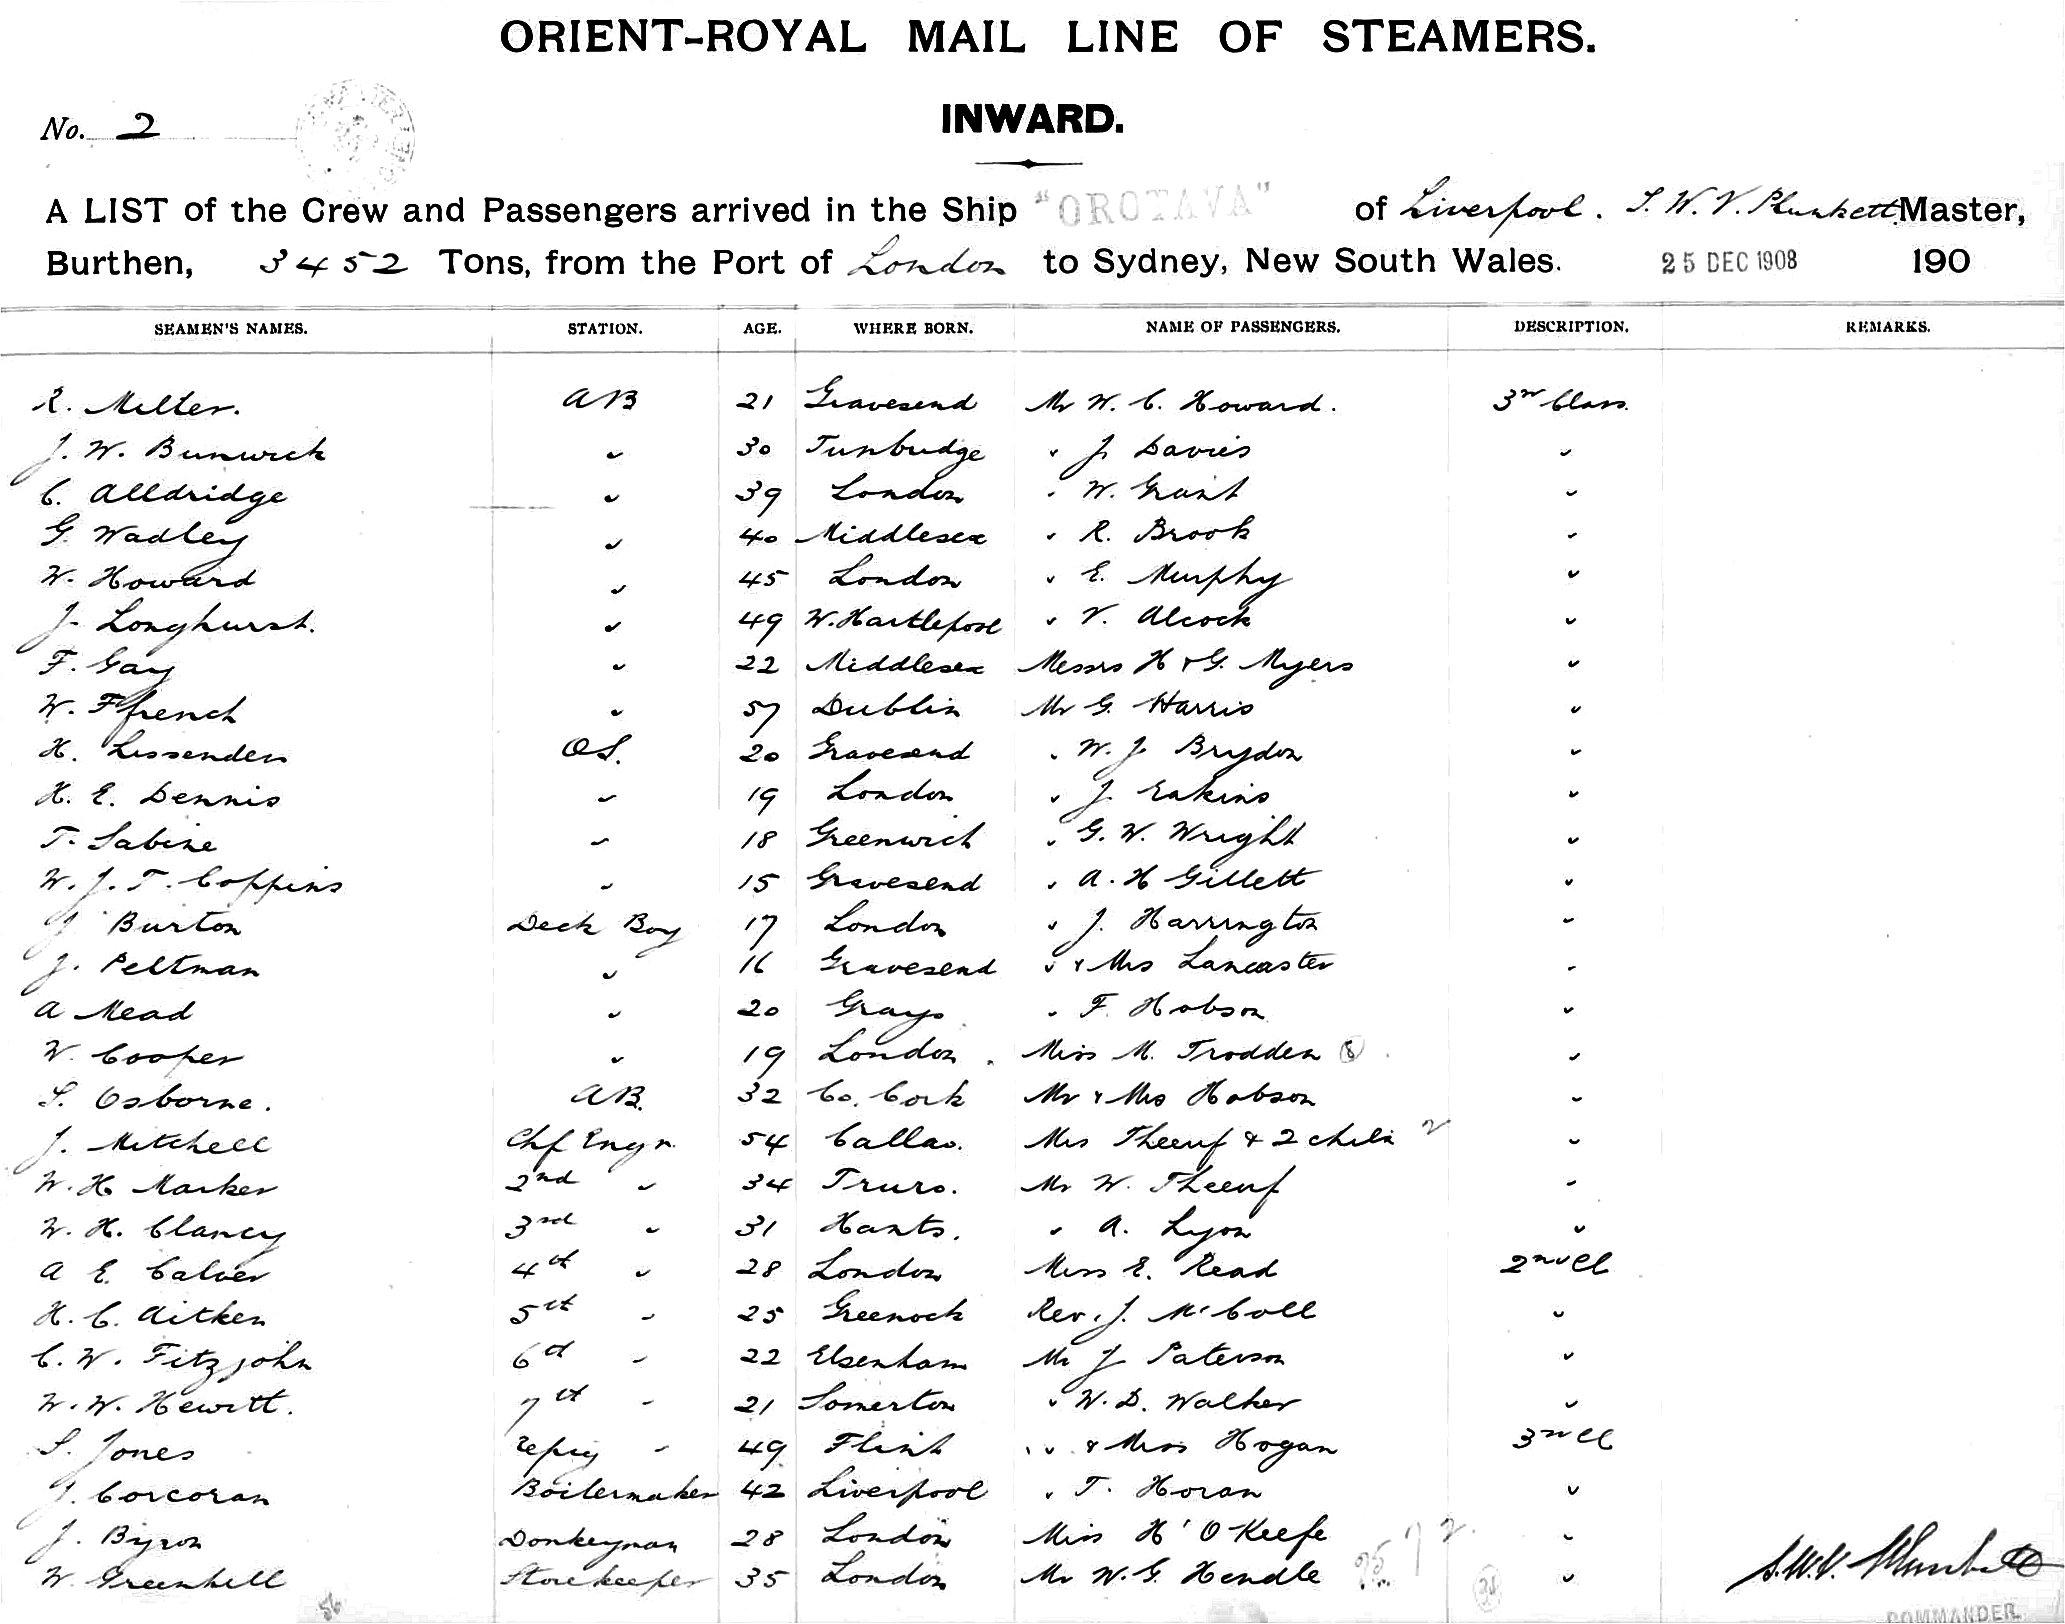 ORIENT-ROYAL MAIL LINE OF STEAMERS.
No. 2
INWARD.
A LIST of the Crew and Passengers arrived in the Ship "OROTAVA" of Liverpool. S. W. V. Plunkett Master,
Burthen, 3452 Tons, from the Port of London to Sydney, New South Wales. 25 DEC 1908 190
SEAMEN'S NAMES. STATION. AGE. WHERE BORN. NAME OF PASSENGERS. DESCRIPTION. REMARKS.
R. Miller. AB 21 Gravesend Mr W. C. Howard. 3rd Class.
J. W. Bunwick " 30 Tunbudge " J. Davies "
C. Alldridge " 39 London " W. Grant "
G. Wadley " 40 Middlesex " R. Brook "
W. Howard " 45 London " E. Murphy "
J. Longhurst. " 49 W. Hartlepool " V. Alcock "
F. Gay " 22 Middlesex Messrs H & G. Myers "
W. Ffrench " 57 Dublin Mr G. Harris "
H. Lissenden OS. 20 Gravesend " W. J. Brydon "
H. E. Dennis " 19 London " J. Eakins "
T. Sabine " 18 Greenwich " G. W. Wright "
W. J. T. Coppins " 15 Gravesend " A. H Gillett "
J Burton Deck Boy 17 London " J. Harrington "
J. Peltman " 16 Gravesend " & Mrs Lancaster "
A Mead " 20 Grays " F. Hobson "
W. Cooper " 19 London. Miss M. Trodden 8 "
S. Osborne. AB. 32 Co. Cork Mr & Mrs Hobson "
J. Mitchell Chf Engr. 54 Callao. Mrs Theeuf & 2 child 2 "
W. H Marker 2nd " 34 Truro. Mr W. Theeuf "
W. H. Clancy 3rd " 31 Hants. " A. Lyon "
A E. Calver 4th " 28 London Miss E. Read 2nd Cl
H. C. Aitken 5th " 25 Greenock Rev. J. McColl "
C. W. Fitzjohn 6th " 22 Elsenham Mr J Paterson "
W. W. Hewitt. 7th " 21 Somerton " W. D. Walker "
S. Jones Refrig " 49 Flint " " & Miss Hogan 3rd Cl
J. Corcoran Boilermaker 42 Liverpool " T. Horan "
J. Byron Donkeyman 28 London Miss H' O'Keefe "
W. Greenhill Storekeeper 35 London Mr W. G. Hendle "
S. W. V. Plunkett
56
COMMANDER